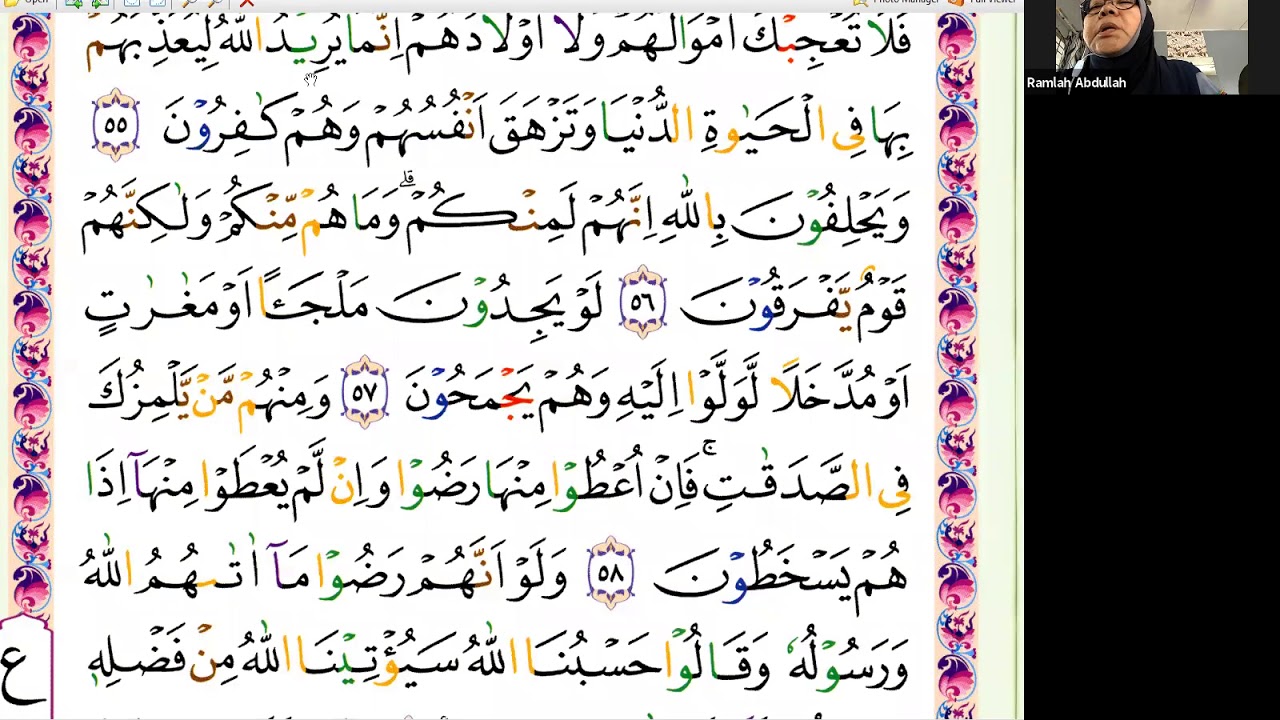 Open
Photo Manager
Full Viewer
Ramlah Abdullah
فَلَا تُعْجِبْكَ اَمْوَالُهُمْ وَلَآ اَوْلَادُهُمْ اِنَّمَا يُرِيْدُ اللّٰهُ لِيُعَذِّبَهُمْ
بِهَا فِى الْحَيٰوةِ الدُّنْيَا وَتَزْهَقَ اَنْفُسُهُمْ وَهُمْ كٰفِرُوْنَ ٥٥
وَيَحْلِفُوْنَ بِاللّٰهِ اِنَّهُمْ لَمِنْكُمْ ۗ وَمَا هُمْ مِّنْكُمْ وَلٰكِنَّهُمْ
قَوْمٌ يَّفْرَقُوْنَ ٥٦ لَوْ يَجِدُوْنَ مَلْجَـًٔا اَوْ مَغٰرٰتٍ
اَوْ مُدَّخَلًا لَّوَلَّوْا اِلَيْهِ وَهُمْ يَجْمَحُوْنَ ٥٧ وَمِنْهُمْ مَّنْ يَّلْمِزُكَ
فِى الصَّدَقٰتِۚ فَاِنْ اُعْطُوْا مِنْهَا رَضُوْا وَاِنْ لَّمْ يُعْطَوْا مِنْهَآ اِذَا
هُمْ يَسْخَطُوْنَ ٥٨ وَلَوْ اَنَّهُمْ رَضُوْا مَآ اٰتٰىهُمُ اللّٰهُ
وَرَسُوْلُهٗ وَقَالُوْا حَسْبُنَا اللّٰهُ سَيُؤْتِيْنَا اللّٰهُ مِنْ فَضْلِهٖ
ع